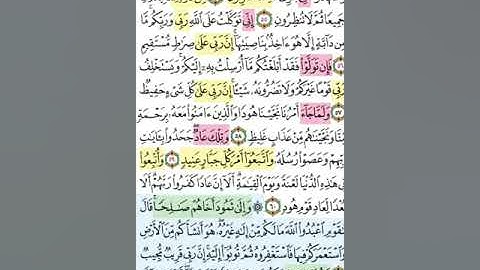 جَمِيعًا ثُمَّ لَا تُنظِرُونِ ٥٥ إِنِّي تَوَكَّلْتُ عَلَى ٱللَّهِ رَبِّي وَرَبِّكُم مَّا
مِن دَآبَّةٍ إِلَّا هُوَ ءَاخِذٌۢ بِنَاصِيَتِهَآ إِنَّ رَبِّي عَلَىٰ صِرَٰطٍ مُّسْتَقِيمٍ
٥٦ فَإِن تَوَلَّوْا۟ فَقَدْ أَبْلَغْتُكُم مَّآ أُرْسِلْتُ بِهِۦٓ إِلَيْكُمْ وَيَسْتَخْلِفُ
رَبِّي قَوْمًا غَيْرَكُمْ وَلَا تَضُرُّونَهُۥ شَيْـًٔا إِنَّ رَبِّي عَلَىٰ كُلِّ شَىْءٍ حَفِيظٌ
٥٧ وَلَمَّا جَآءَ أَمْرُنَا نَجَّيْنَا هُودًا وَٱلَّذِينَ ءَامَنُوا۟ مَعَهُۥ بِرَحْمَةٍ
مِّنَّا وَنَجَّيْنَٰهُم مِّنْ عَذَابٍ غَلِيظٍ ٥٨ وَتِلْكَ عَادٌ جَحَدُوا۟ بِـَٔايَٰتِ
رَبِّهِمْ وَعَصَوْا۟ رُسُلَهُۥ وَٱتَّبَعُوٓا۟ أَمْرَ كُلِّ جَبَّارٍ عَنِيدٍ ٥٩ وَأُتْبِعُوا۟
فِي هَٰذِهِ ٱلدُّنْيَا لَعْنَةً وَيَوْمَ ٱلْقِيَٰمَةِ أَلَآ إِنَّ عَادًا كَفَرُوا۟ رَبَّهُمْ أَلَا
بُعْدًا لِّعَادٍ قَوْمِ هُودٍ ٦٠ ۞ وَإِلَىٰ ثَمُودَ أَخَاهُمْ صَٰلِحًا قَالَ
يَٰقَوْمِ ٱعْبُدُوا۟ ٱللَّهَ مَا لَكُم مِّنْ إِلَٰهٍ غَيْرُهُۥ هُوَ أَنشَأَكُم مِّنَ ٱلْأَرْضِ
وَٱسْتَعْمَرَكُمْ فِيهَا فَٱسْتَغْفِرُوهُ ثُمَّ تُوبُوٓا۟ إِلَيْهِ إِنَّ رَبِّي قَرِيبٌ مُّجِيبٌ